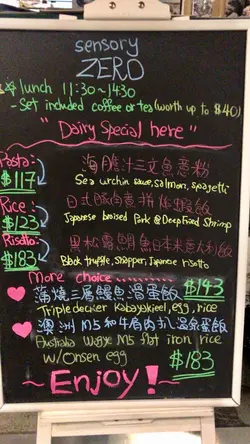 sensory
ZERO
lunch 11:30~14:30
- Set included coffee or tea (worth up to $40)
"Dairy Special here"
Pasta:
$117
海膽汁三文魚意粉
Sea urchin sauce, salmon, spagetti
Rice:
$123
日式豚肉煮拼炸蝦飯
Japanese braised Pork & Deep Fried Shrimp
Risotto:
$183
黑松露鯛魚日本米意大利飯
Black truffle, snapper, Japanese risotto
More choice..........
蒲燒三層鰻魚滑蛋飯 $143
Triple decker Kabayaki eel, egg, rice
澳洲M5和牛肩肉扒温泉蛋飯
Australia Wagye M5 flat iron rice
w/Onsen egg $183
~Enjoy!~